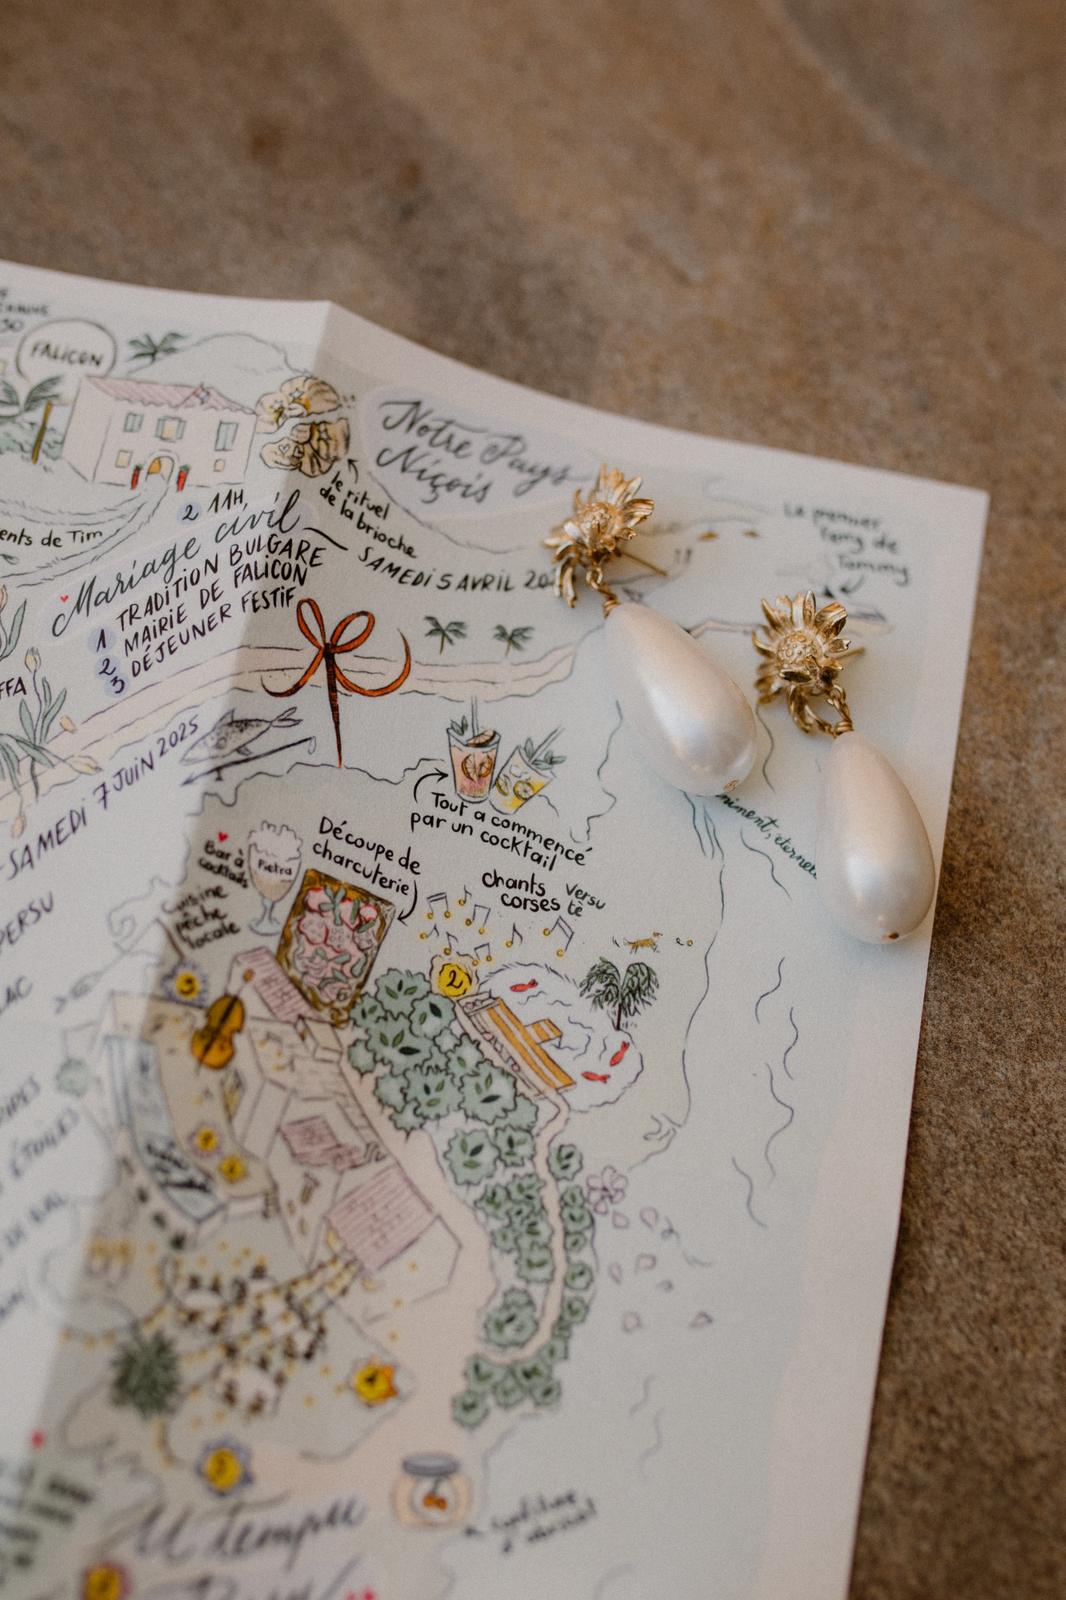 FALICON
Notre Pays
Niçois
le rituel
de la brioche
Le premier
Tommy
ents de Tim
2 11H
Mariage civil
SAMEDI 5 AVRIL 20
1 TRADITION BULGARE
2 MAIRIE DE FALICON
3 DÉJEUNER FESTIF
FFA
SAMEDI 7 JUIN 2025
Tout a commencé
par un cocktail
niment, éterne
Découpe de
charcuterie
Bar à
cocktails
Pietra
Cuisine
pêche
locale
chants
corses
versu
tè
PERSU
LAC
2
3
4
5
U tempu